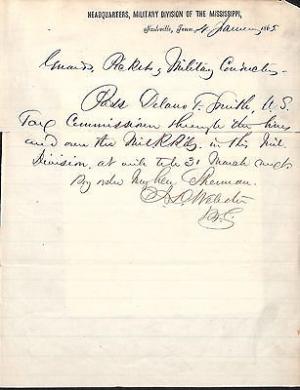 HEADQUARTERS, MILITARY DIVISION OF THE MISSISSIPPI,
Nashville, Tenn. 4 January 1865
Guards, Pickets, Military Conductors
Pass Delano T. Smith, U.S.
Tax Commissioner through the lines
and over the Mil R.Rds. in this Mil.
Division, at will till 31 March next.
By order Maj Gen Sherman.
Webster
B.G.